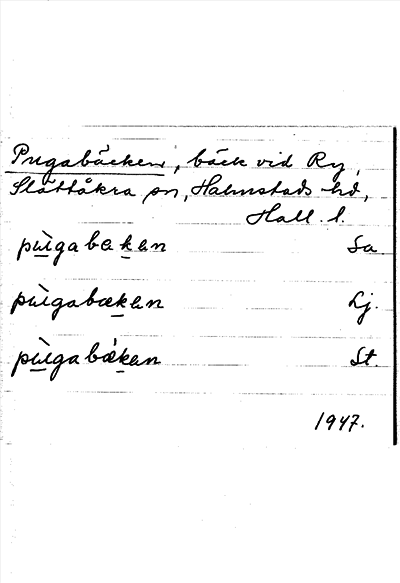 Pugabäcken, bäck vid Ry,
Slättåkra sn, Halmstads hd,
Hall. l.
pùgabækan Sa
pùgabækan Lj.
pùgabækan St.
1947.